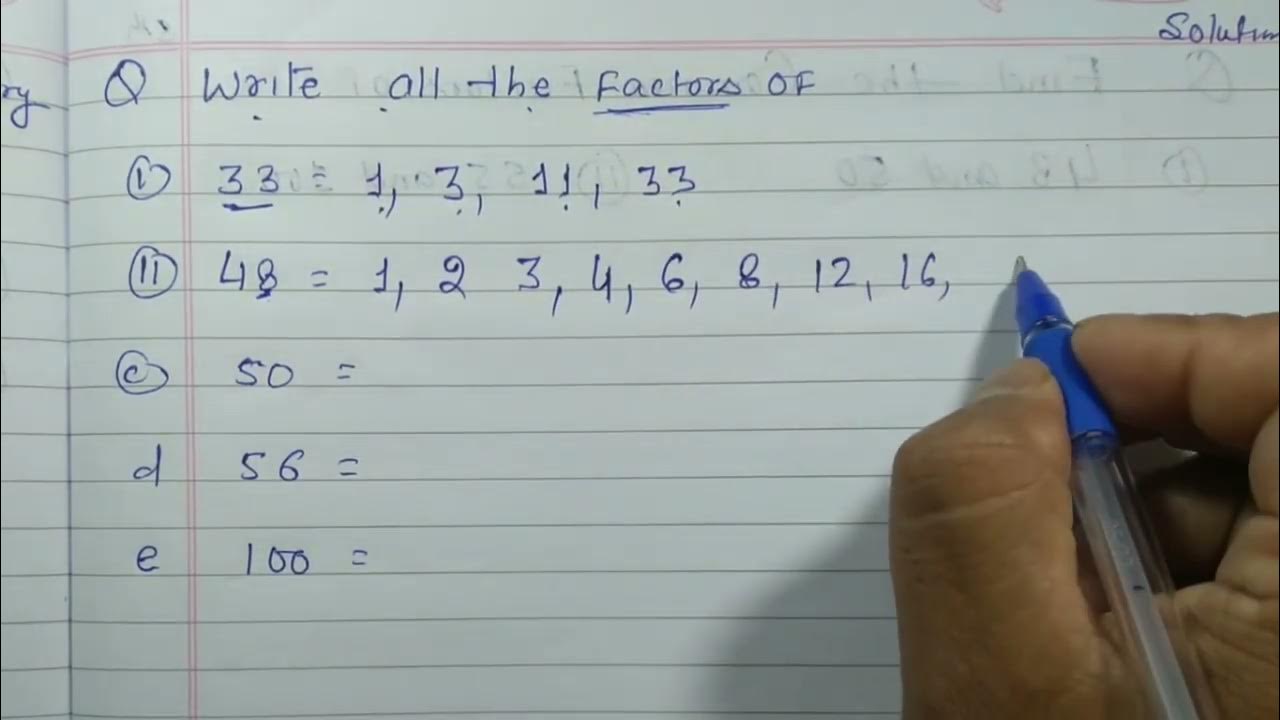 Solution
ry Q Write all the Factors OF
(i) 33 = 1, 3, 11, 33
(ii) 48 = 1, 2 3, 4, 6, 8, 12, 16,
(c) 50 =
d 56 =
e 100 =